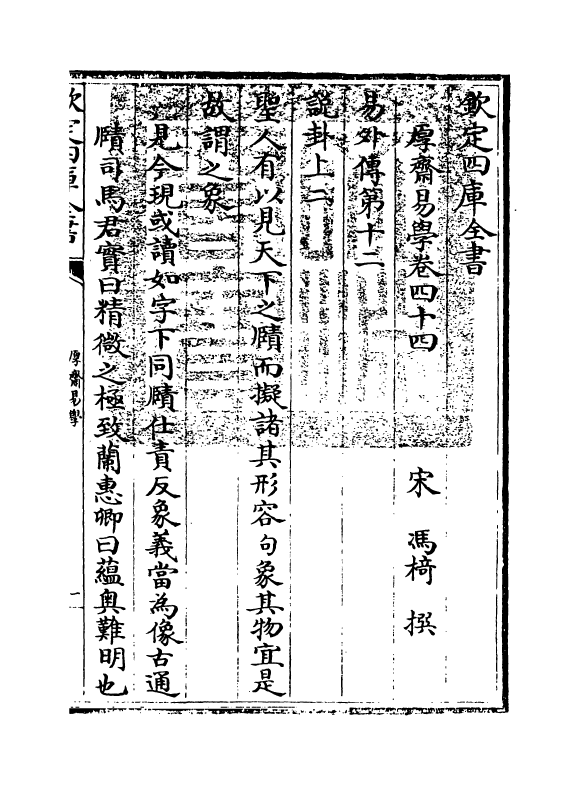 欽定四庫全書
厚齋易學卷四十四　　宋　馮椅　撰
易外傳第十二
說卦上二
聖人有以見天下之賾而擬諸其形容句象其物宜是
故謂之象
見今現或讀如字下同賾仕責反象義當為像古通
賾司馬君實曰精微之極致蘭惠卿曰蘊奥難明也
欽定四庫全書
厚齋易學
一